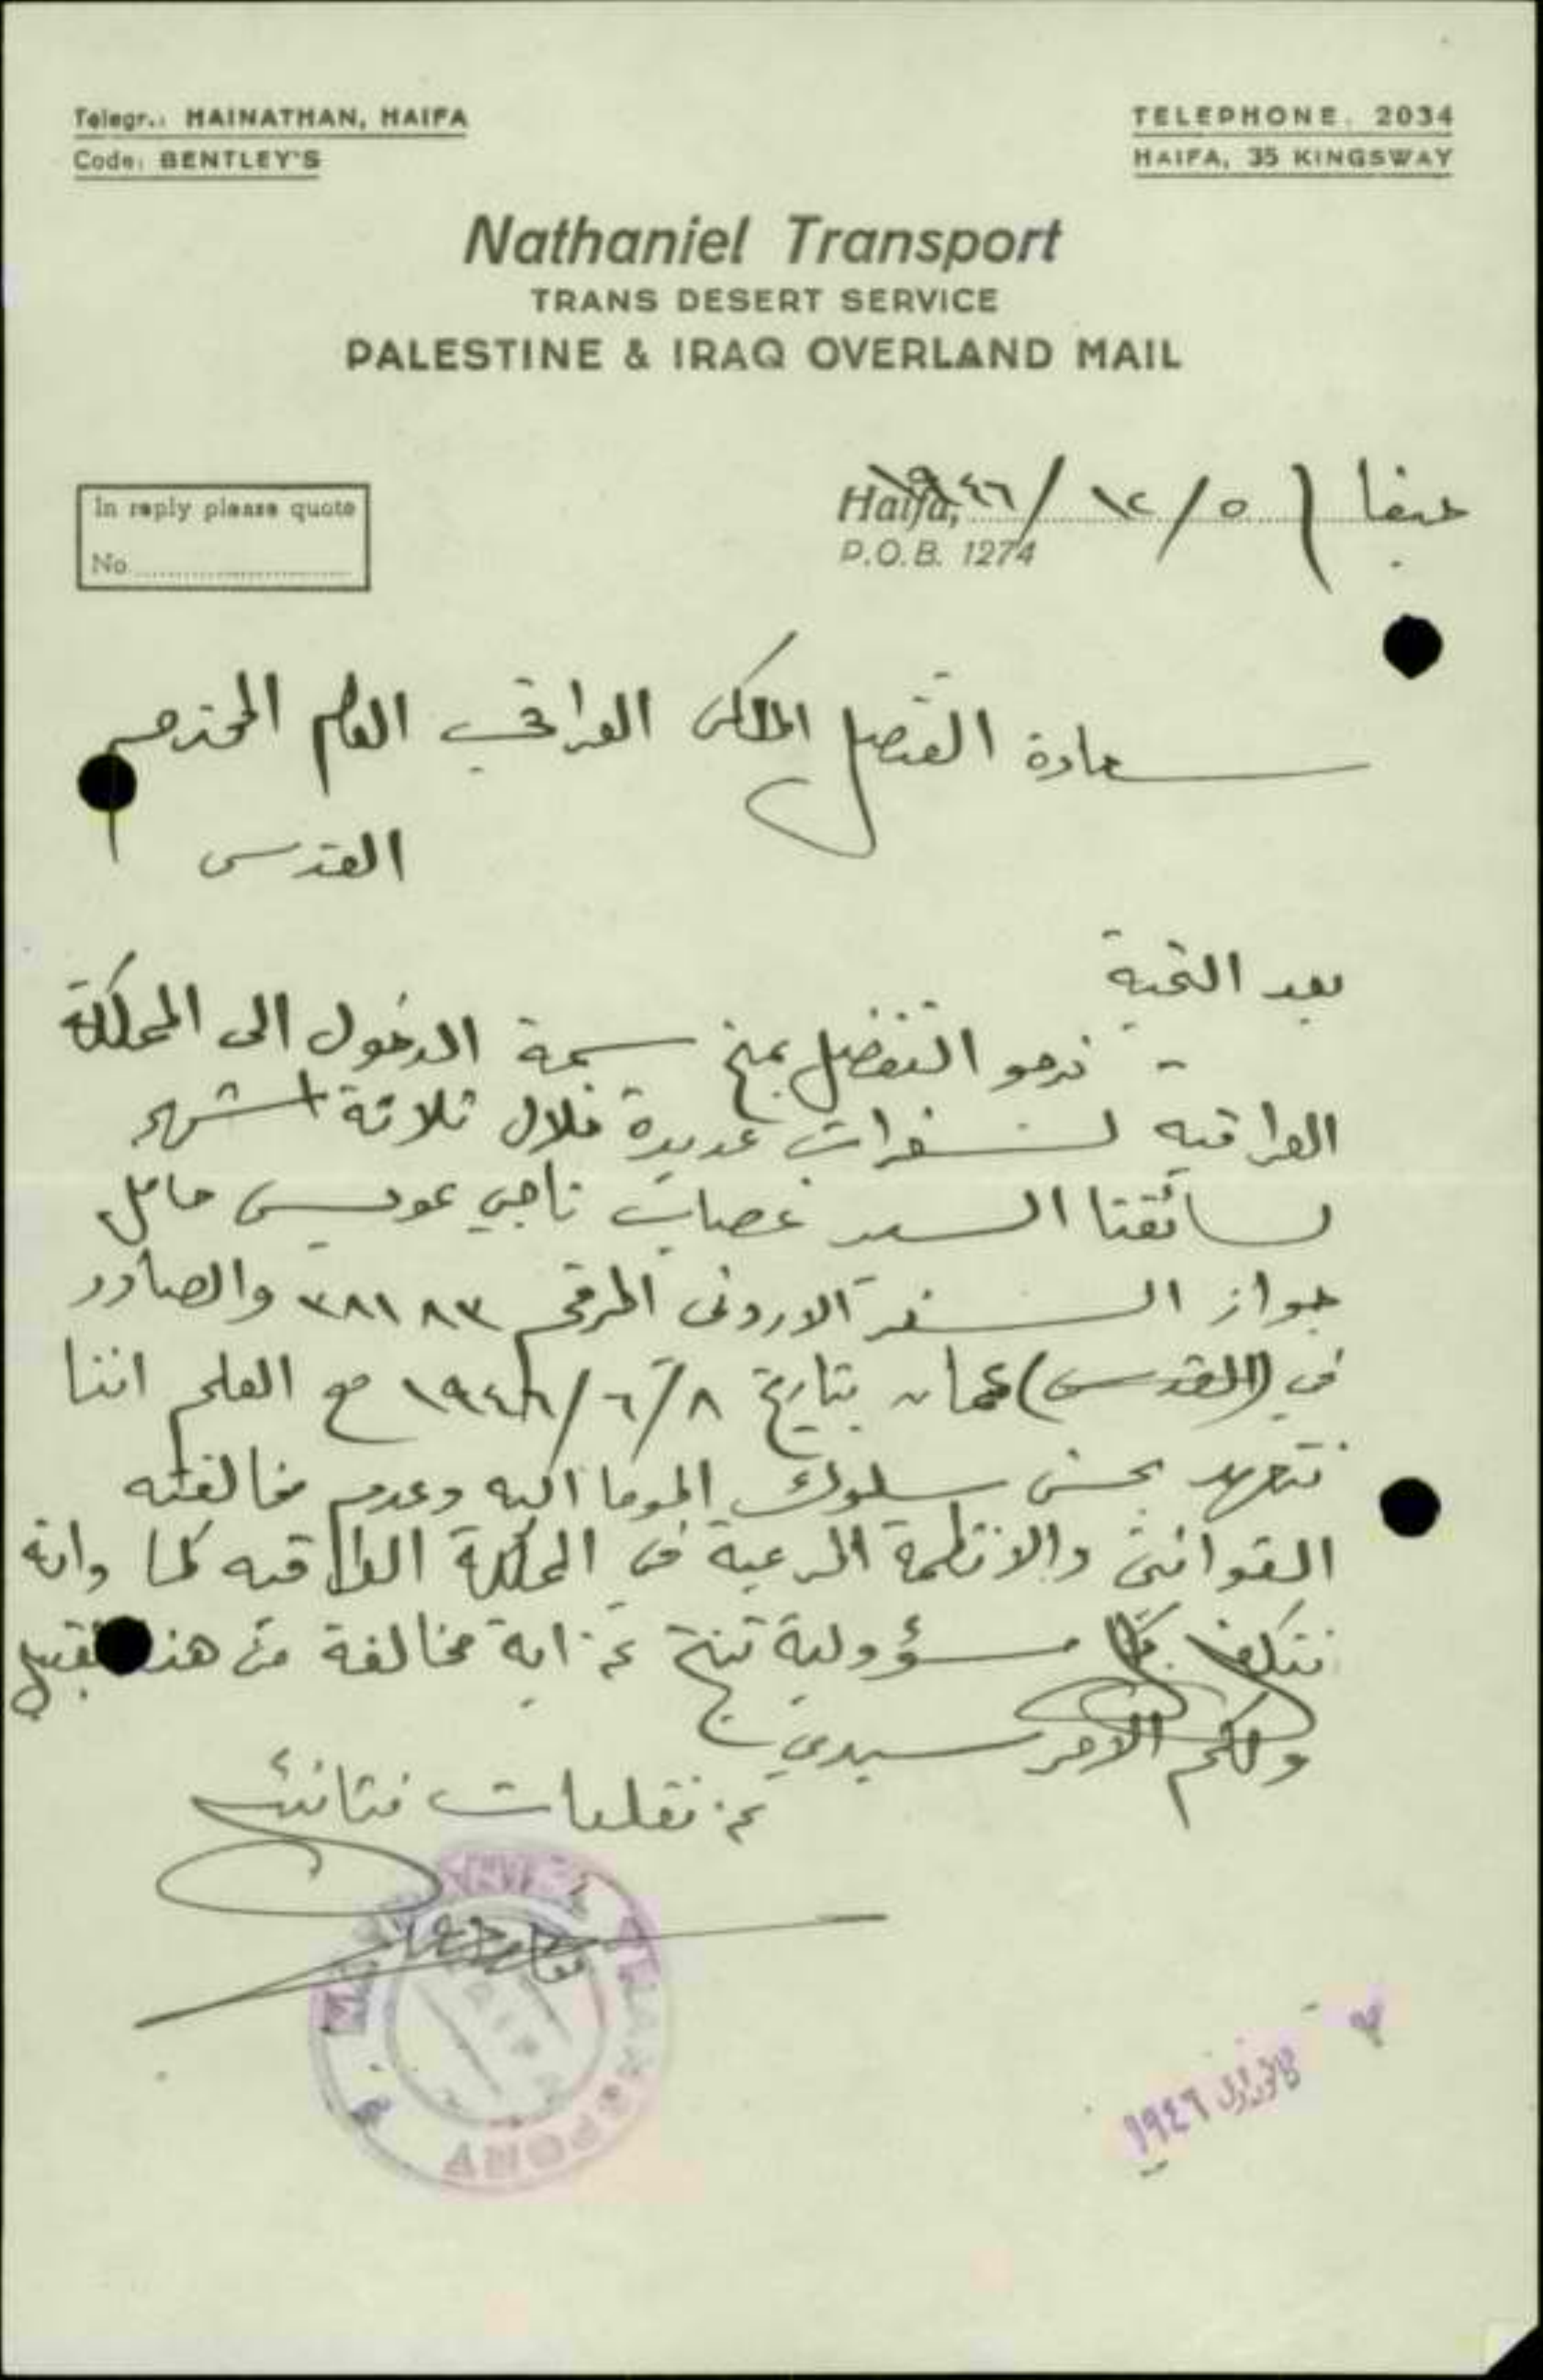 Telegr.: HAINATHAN, HAIFA
Code: BENTLEY'S
TELEPHONE. 2034
HAIFA, 35 KINGSWAY
Nathaniel Transport
TRANS DESERT SERVICE
PALESTINE & IRAQ OVERLAND MAIL
In reply please quote
No
Haifa,
P.O.B. 1274
حيفا / ٥ / ١٢ / ١٩٤٦
سعادة القنصل الملكي العراقي العام المحترم
القدس
بعد التحية
نرجو التفضل بمنح سمة الدخول الى المملكة
العراقيه لسفرات عديدة خلال ثلاثة اشهر
لسائقنا السيد غصاب ناجي عويس حامل
جواز السفر الاردني المرقم ٣٨١٨٣ والصادر
في (القدس) عمان بتاريخ ٨/٦/١٩٤٦ مع العلم اننا
نتعهد بحسن سلوك الموما اليه وعدم مخالفته
القوانين والانظمة المرعية في المملكة العراقيه كما وانه
نتكفل بكل مسؤولية تنتج عن اية مخالفة من هذا القبيل
ولكم الامر سيدي
عن نقليات نتانئيل
TRANSPORT
١٩٤٦